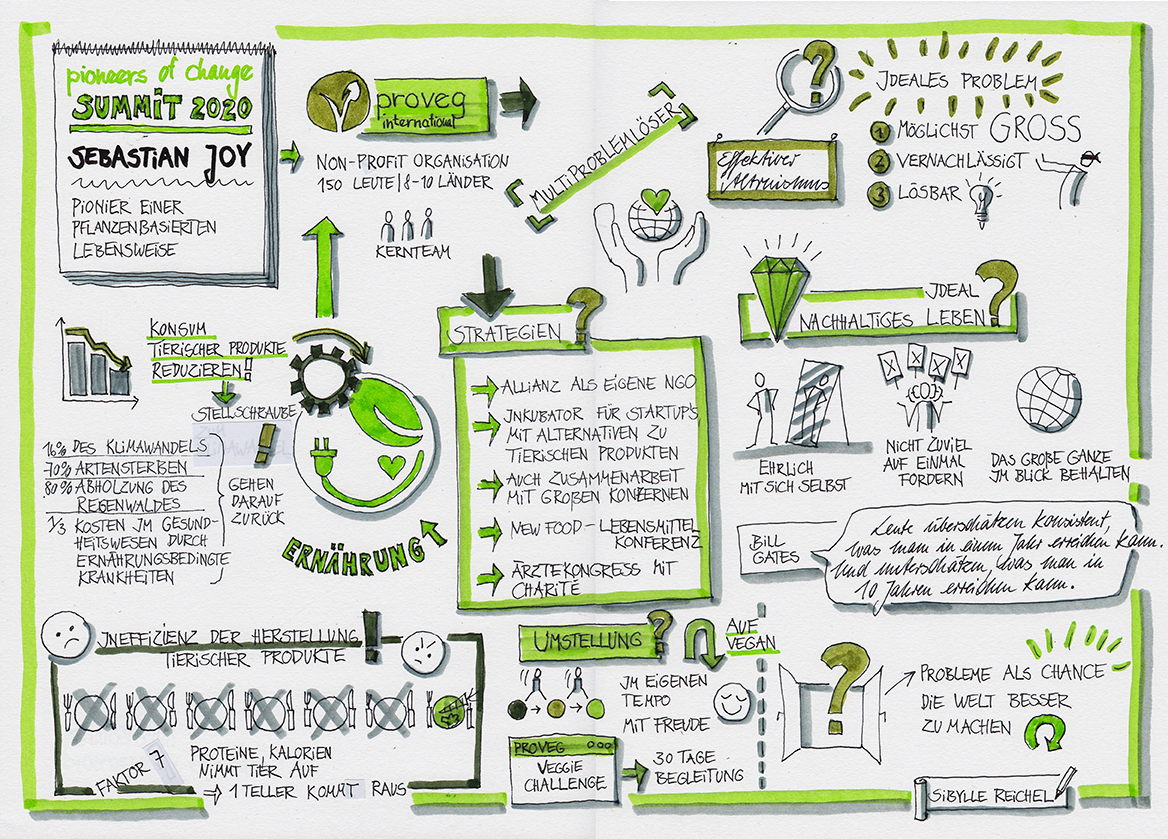 pioneers of change
SUMMIT 2020
SEBASTIAN JOY
PIONIER EINER
PFLANZENBASIERTEN
LEBENSWEISE
proveg
international
NON-PROFIT ORGANISATION
150 LEUTE | 8-10 LÄNDER
KERNTEAM
MULTIPROBLEMLÖSER
Effektiver
Altruismus
?
JDEALES PROBLEM
1 MÖGLICHST GROSS
2 VERNACHLÄSSIGT
3 LÖSBAR
KONSUM
TIERISCHER PRODUKTE
REDUZIEREN!
STELLSCHRAUBE
!
16% DES KLIMAWANDELS
70% ARTENSTERBEN
80% ABHOLZUNG DES
REGENWALDES
1/3 KOSTEN JM GESUND-
HEITSWESEN DURCH
ERNÄHRUNGSBEDINGTE
KRANKHEITEN
GEHEN
DARAUF
ZURÜCK
ERNÄHRUNG
STRATEGIEN ?
ALLIANZ ALS EIGENE NGO
JNKUBATOR FÜR STARTUP'S
MIT ALTERNATIVEN ZU
TIERISCHEN PRODUKTEN
AUCH ZUSAMMENARBEIT
MIT GROßEN KONZERNEN
NEW FOOD - LEBENSMITTEL
KONFERENZ
ÄRZTEKONGRESS MIT
CHARITÉ
JDEAL
NACHHALTIGES LEBEN ?
EHRLICH
MIT SICH SELBST
NICHT ZUVIEL
AUF EINMAL
FORDERN
DAS GROßE GANZE
JM BLICK BEHALTEN
BILL
GATES
Leute überschätzen konsistent,
was man in einem Jahr erreichen kann.
Und unterschätzen, was man in
10 Jahren erreichen kann.
JNEFFIZIENZ DER HERSTELLUNG !
TIERISCHER PRODUKTE
FAKTOR 7
PROTEINE, KALORIEN
NIMMT TIER AUF
→ 1 TELLER KOMMT RAUS
UMSTELLUNG ?
AUF
VEGAN
JM EIGENEN
TEMPO
MIT FREUDE
PROVEG
VEGGIE
CHALLENGE
30 TAGE
BEGLEITUNG
?
PROBLEME ALS CHANCE
DIE WELT BESSER
ZU MACHEN
SIBYLLE REICHEL